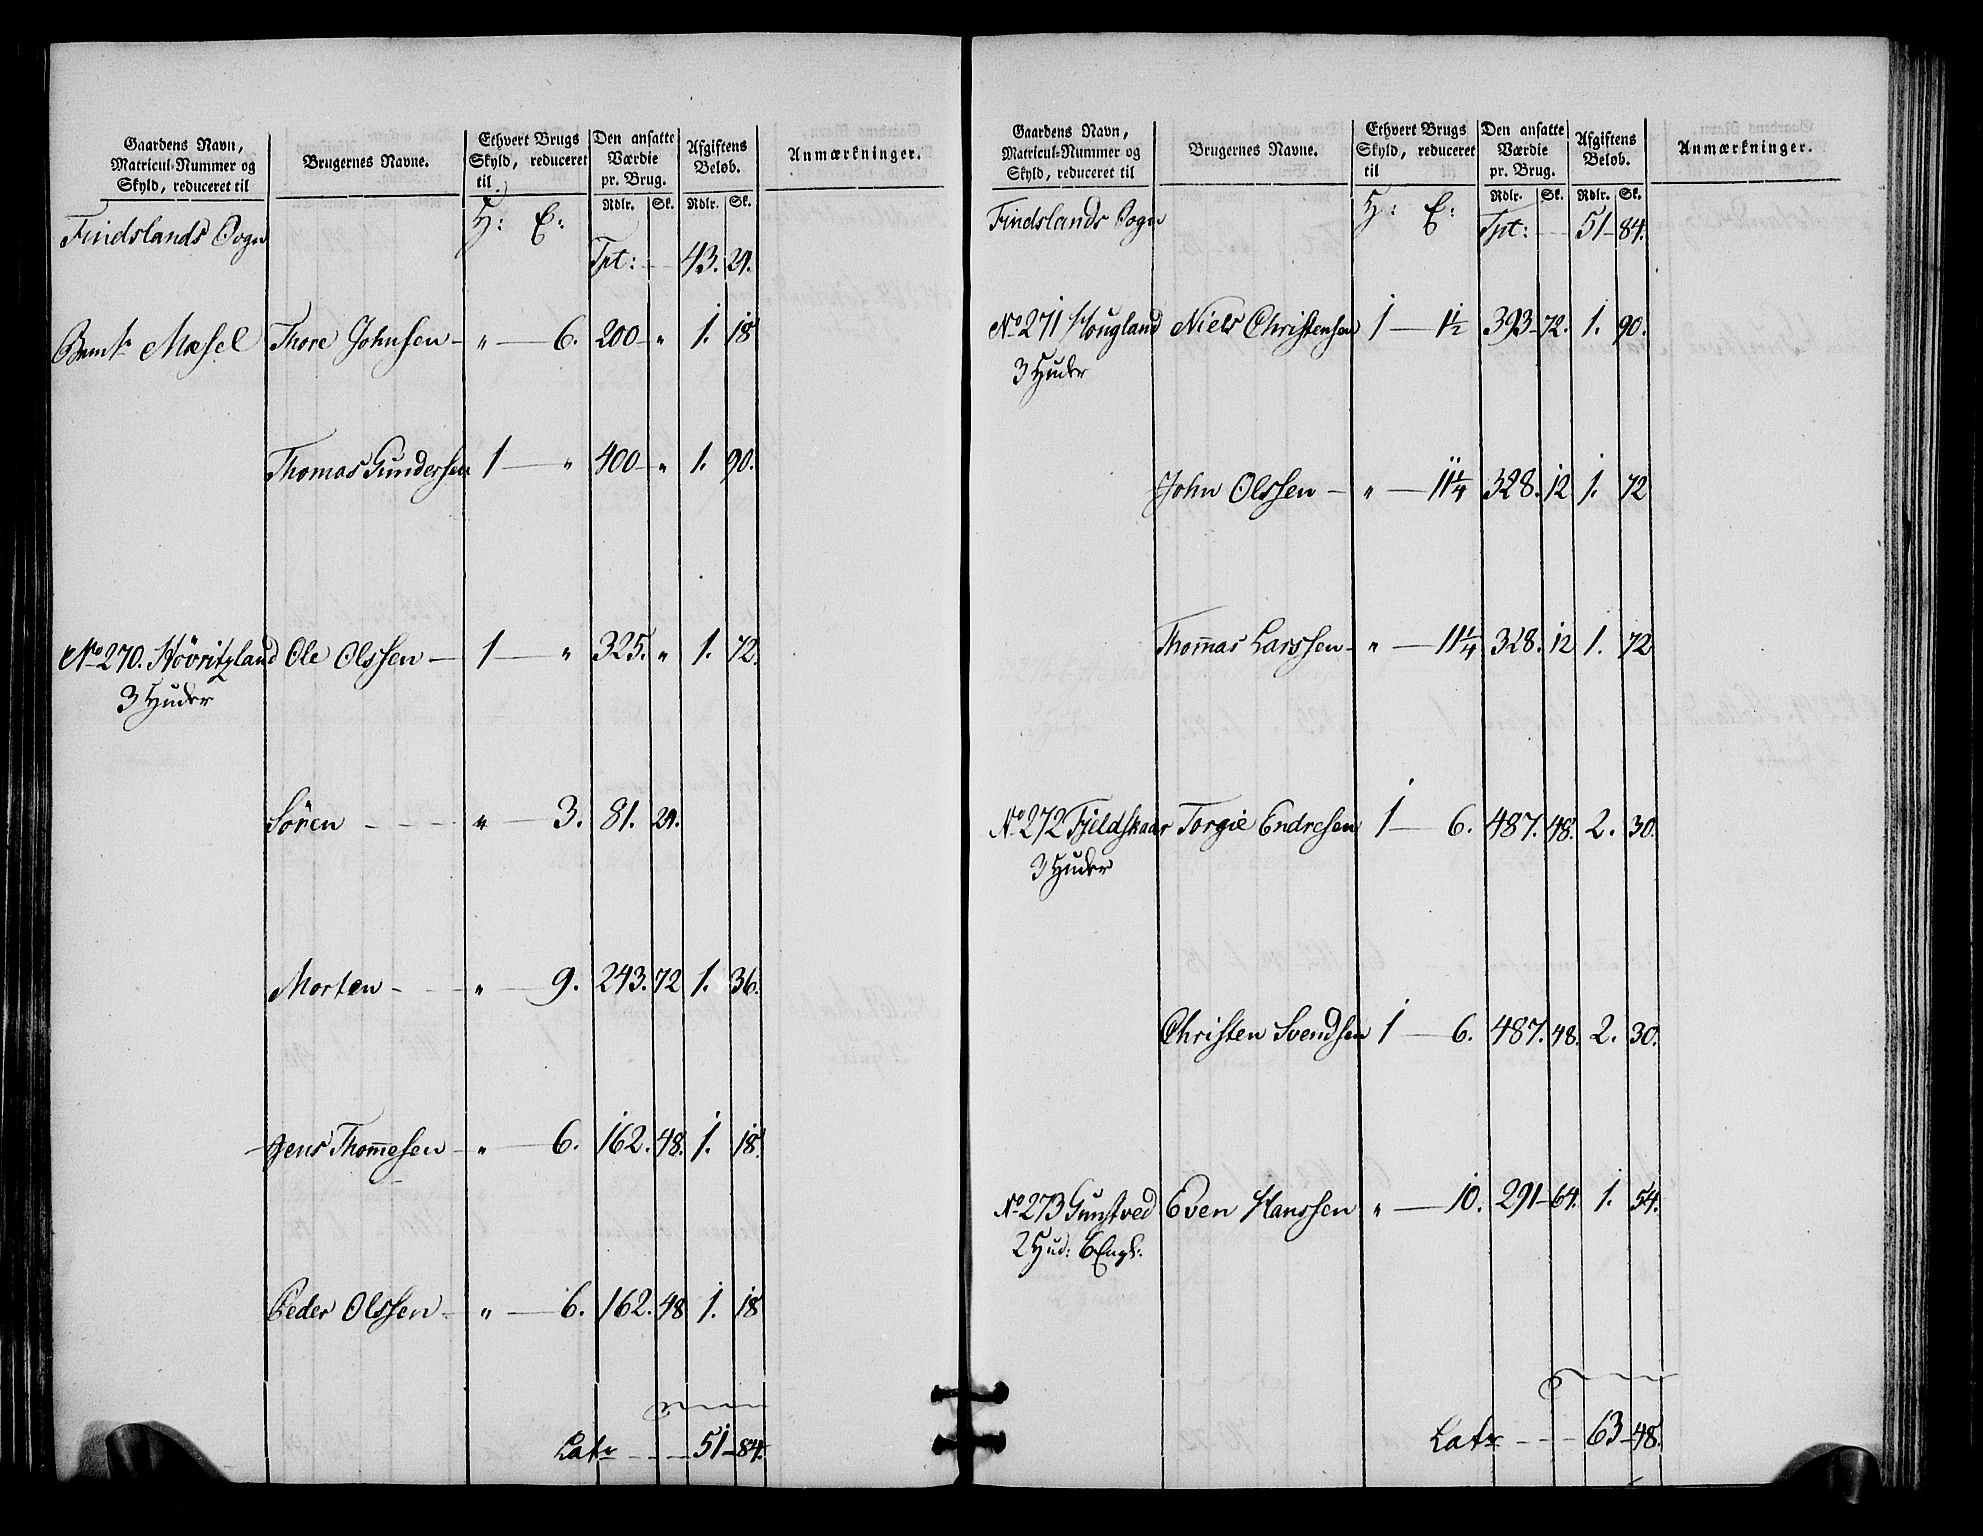 Gaardens Navn, Matricul-Nummer og Skyld, reduceret til | Brugernes Navne. | Ethvert Brugs Skyld, reduceret til | Den ansatte Værdie pr. Brug. | Afgiftens Beløb. | Anmærkninger.
Rdlr. Sk. Rdlr. Sk.
Findslands Sogn H: E:
Tpt: - - 43. 24.
Mæsel Thore Johnsen - " - 6. 200 - " 1. 18
Thomas Gundersen 1 - " 400 - " 1. 90.
No 270. Høvritzland Ole Olssen - 1 - " 325. " 1. 72.
3 Huder
Sören - - - " - 3. 81. 24.
Morten - - - " - 9. 243. 72 1. 36.
Jens Thom̅esen - " - 6. 162. 48. 1. 18.
Peder Olssen - " - 6. 162. 48 1. 18
Latr - - - 51 - 84.
Gaardens Navn, Matricul-Nummer og Skyld, reduceret til | Brugernes Navne. | Ethvert Brugs Skyld, reduceret til | Den ansatte Værdie pr. Brug. | Afgiftens Beløb. | Anmærkninger.
Rdlr. Sk. Rdlr. Sk.
Findslands Sogn H: E: Tpt: - - 51 - 84.
No 271 Hougland Niels Christensen 1 - 1½ 393 - 72. 1. 90.
3 Huder
John Olssen - " - 11¼ 328. 12 1. 72
Thom̅as Larssen - " - 11¼ 328. 12 1. 72
No 272 Fjeldskaar Torgie Endresen 1 - 6. 487. 48. 2. 30.
3 Huder
Christen Svendsen 1 - 6. 487. 48. 2. 30.
No 273 Gunstved Even Hanssen " - 10. 291 - 64. 1. 54.
2 Hud: 6 Engl:
Latr - - - 63 - 48.